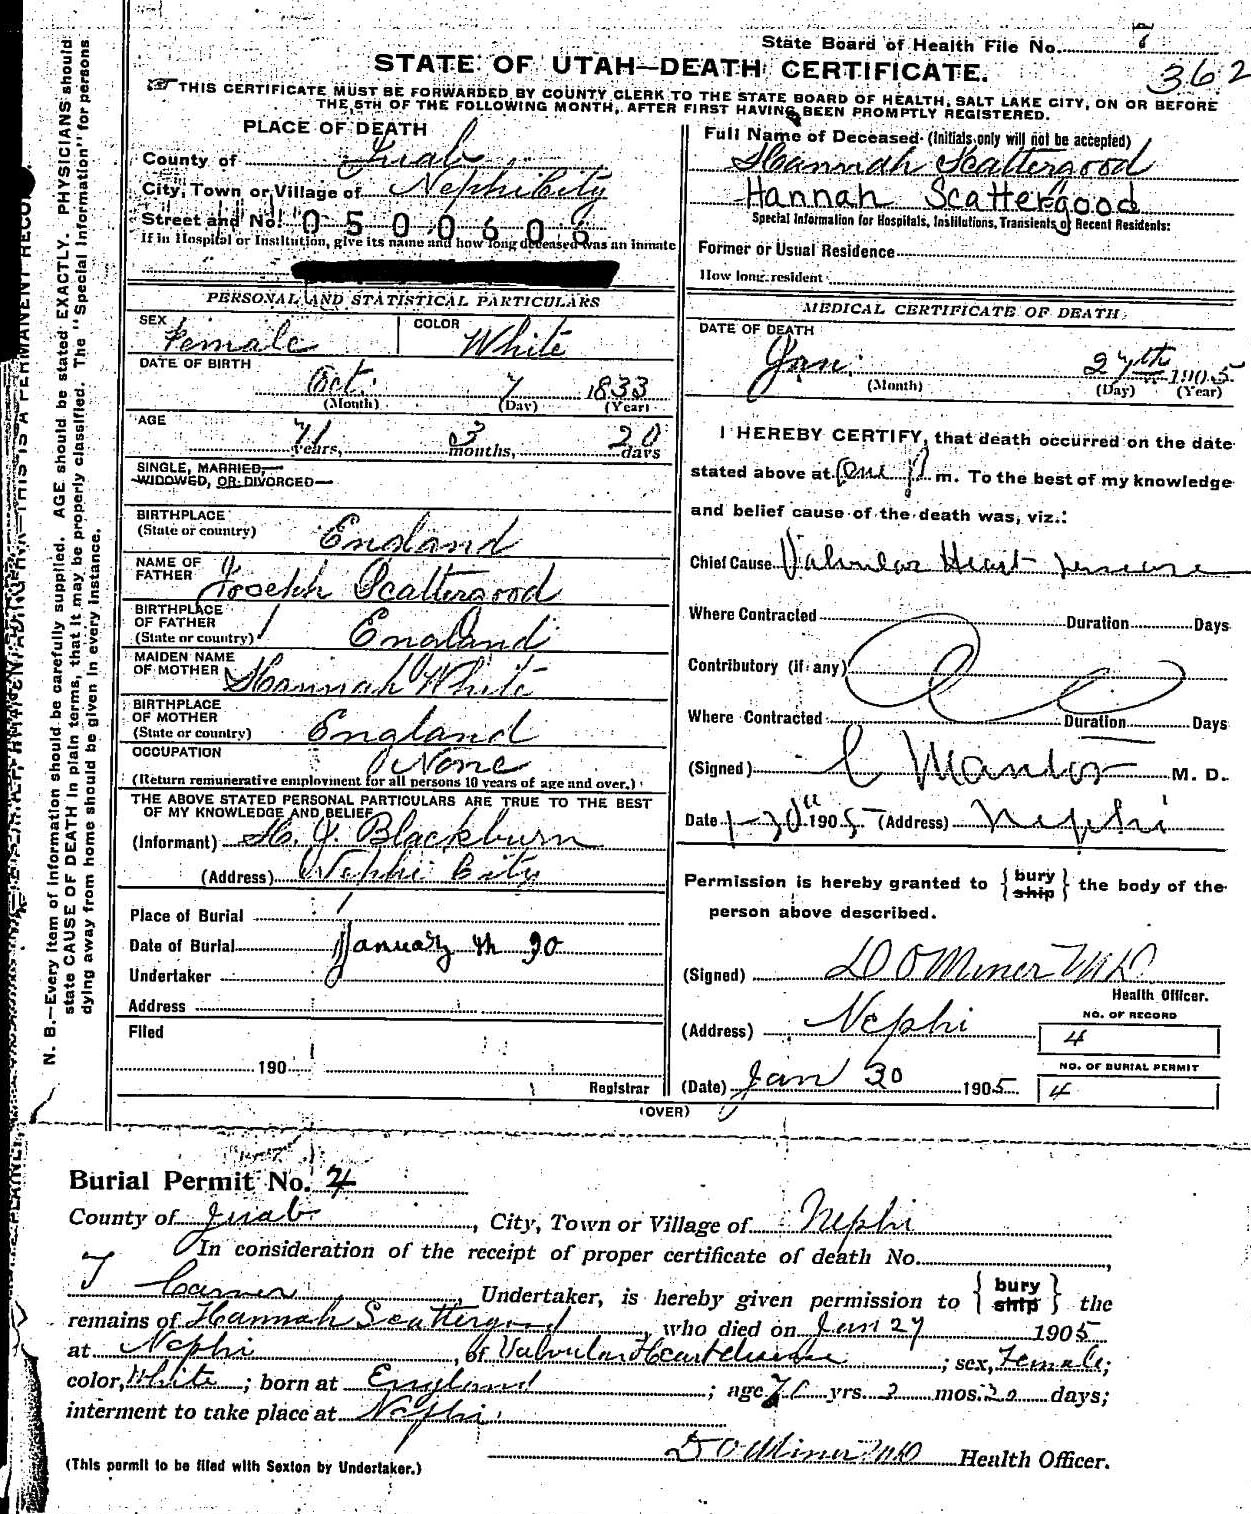 State Board of Health File No. 7
362
STATE OF UTAH—DEATH CERTIFICATE.
THIS CERTIFICATE MUST BE FORWARDED BY COUNTY CLERK TO THE STATE BOARD OF HEALTH, SALT LAKE CITY, ON OR BEFORE
THE 5TH OF THE FOLLOWING MONTH, AFTER FIRST HAVING BEEN PROMPTLY REGISTERED.
PLACE OF DEATH
County of Juab
City, Town or Village of Nephi City
Street and No. 0500606
If in Hospital or Institution, give its name and how long deceased was an inmate
Full Name of Deceased (Initials only will not be accepted)
Hannah Scattergood
Hannah Scattergood
Special Information for Hospitals, Institutions, Transients or Recent Residents:
Former or Usual Residence
How long resident
PERSONAL AND STATISTICAL PARTICULARS
SEX Female COLOR White
DATE OF BIRTH
Oct. 7 1833
(Month) (Day) (Year)
AGE
71 years, 3 months, 20 days
SINGLE, MARRIED,
WIDOWED, OR DIVORCED
BIRTHPLACE
(State or country) England
NAME OF
FATHER Joseph Scattergood
BIRTHPLACE
OF FATHER
(State or country) England
MAIDEN NAME
OF MOTHER Hannah White
BIRTHPLACE
OF MOTHER
(State or country) England
OCCUPATION None
(Return remunerative employment for all persons 10 years of age and over.)
THE ABOVE STATED PERSONAL PARTICULARS ARE TRUE TO THE BEST
OF MY KNOWLEDGE AND BELIEF
(Informant) H. J. Blackburn
(Address) Nephi City
Place of Burial
Date of Burial January th 30
Undertaker
Address
Filed
190
Registrar
MEDICAL CERTIFICATE OF DEATH
DATE OF DEATH
Jan. 27th 1905
(Month) (Day) (Year)
I HEREBY CERTIFY, that death occurred on the date
stated above at One P m. To the best of my knowledge
and belief cause of the death was, viz.:
Chief Cause Valvular Heart
Where Contracted Duration Days
Contributory (if any)
Where Contracted Duration Days
(Signed) M. D.
Date 1-30th 1905 (Address) Nephi
Permission is hereby granted to { bury ship } the body of the
person above described.
(Signed) D O Miner MD
Health Officer.
(Address) Nephi
NO. OF RECORD
4
NO. OF BURIAL PERMIT
4
(Date) Jan 30 1905
(OVER)
N. B.—Every item of information should be carefully supplied. AGE should be stated EXACTLY. PHYSICIANS should
state CAUSE OF DEATH in plain terms, that it may be properly classified. The "Special Information" for persons
dying away from home should be given in every instance.
Burial Permit No. 4
County of Juab, City, Town or Village of Nephi
In consideration of the receipt of proper certificate of death No.
, Undertaker, is hereby given permission to { bury ship } the
remains of Hannah Scattergood, who died on Jan 27 1905
at Nephi, of Valvular Heart disease; sex, Female;
color, White; born at England; age yrs. mos. 20 days;
interment to take place at Nephi
D O Miner MD Health Officer.
(This permit to be filed with Sexton by Undertaker.)